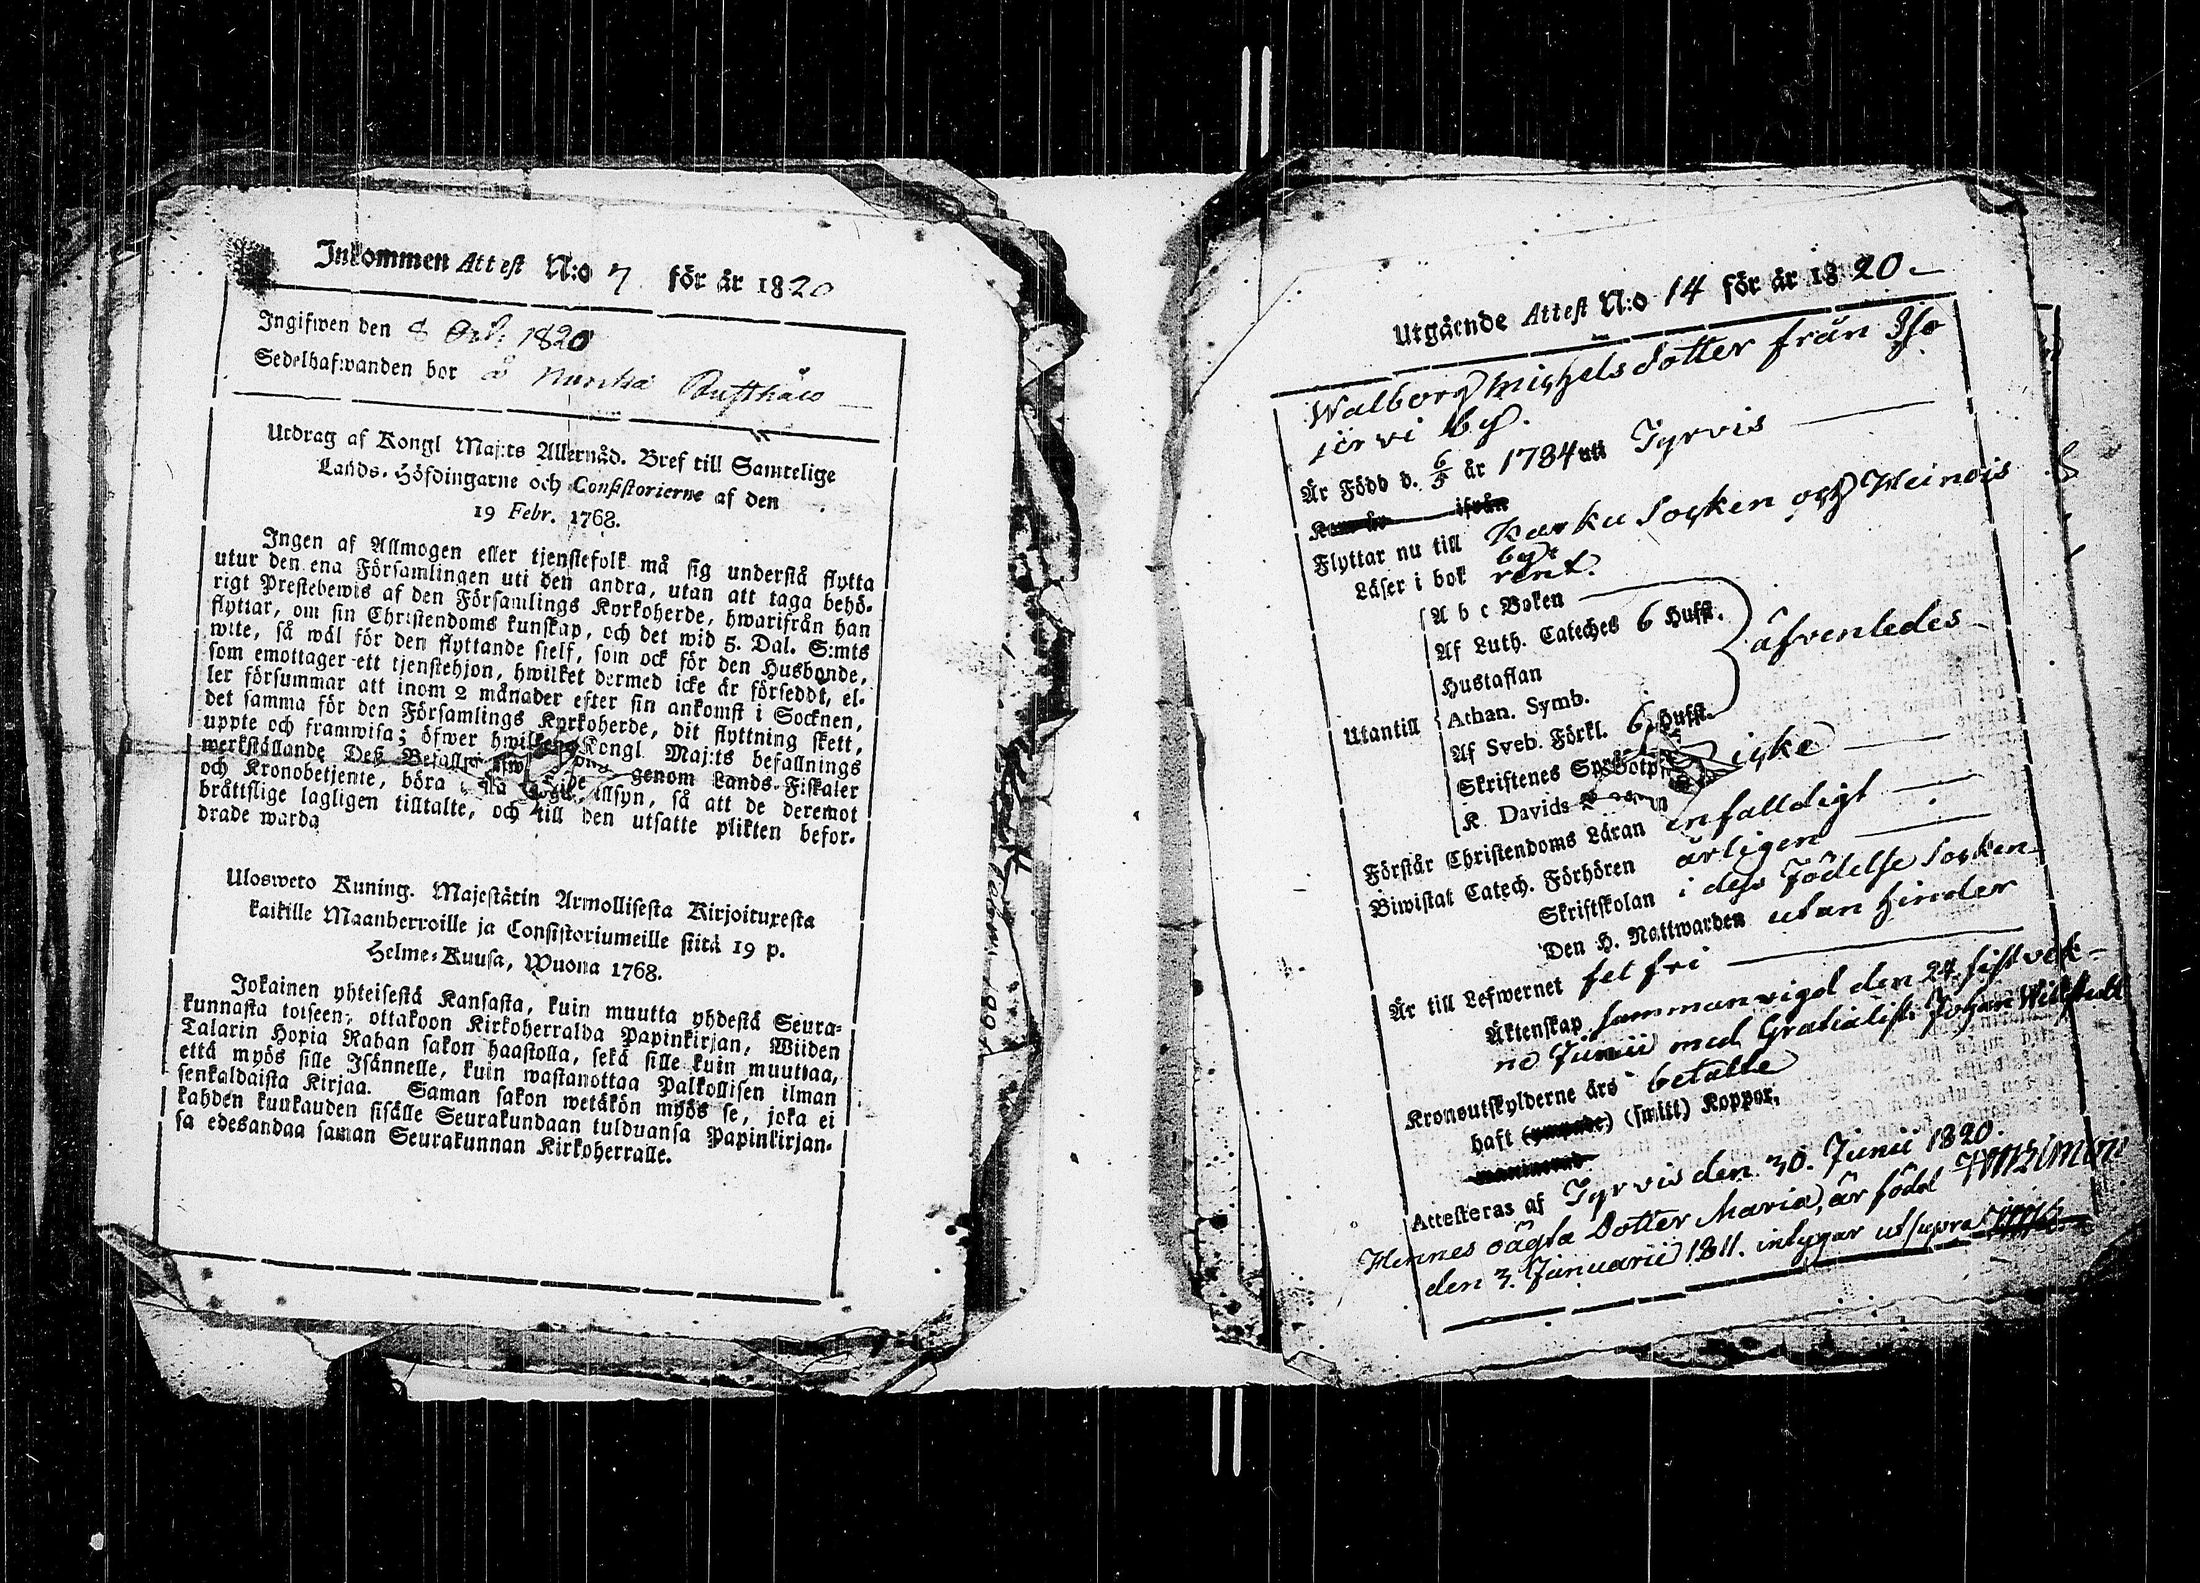 Inkommen Attest N:o 7 för år 1820
Ingifwen den 8 Oct: 1820
Sedelhafwanden bor å Rusthåll
Utdrag af Kongl Maj:ts Allernåd. Bref till Samtelige
Lands-Höfdingarne och Consistorierne af den
19 Febr. 1768.
Ingen af Allmogen eller tjenstefolk må sig understå flytta
utur den ena Församlingen uti den andra, utan att taga behö-
rigt Prestebewis af den Församlings Kyrkoherde, hwarifrån han
flyttar, om sin Christendoms kunskap, och det wid 5. Dal. S:mts
wite, så wäl för den flyttande sielf, som ock för den Husbonde,
som emottager ett tjenstehjon, hwilket dermed icke är förseddt, el-
ler försummar att inom 2 månader efter sin ankomst i Socknen,
det samma för den Församlings Kyrkoherde, dit flyttning skett,
uppte och framwisa; öfwer hwilken Kongl Maj:ts befallnings
werkställande Dess Befallningshafwande genom Lands-Fiskaler
och Kronobetjente, böra hafwa noga tillsyn, så att de deremot
bråttslige lagligen tilltalte, och till den utsatte plikten befor-
drade warda
Ulosweto Kuning. Majestätin Armollisesta Kirjoituxesta
kaikille Maanherroille ja Consistoriumeille siitä 19 p.
Helme-Kuusa, Wuona 1768.
Jokainen yhteisestä Kansasta, kuin muutta yhdestä Seura-
kunnasta toiseen, ottakoon Kirkoherralda Papinkirjan, Wiiden
Talarin Hopia Rahan sakon haastolla, sekä sille kuin muuttaa,
että myös sille Isännelle, kuin wastanottaa Palkollisen ilman
senkaldaista Kirjaa. Saman sakon wetäkön myös se, joka ei
kahden kuukauden sisälle Seurakundaan tulduansa Papinkirjan-
sa edesandaa saman Seurakunnan Kirkoherralle.
Utgående Attest N:o 14 för år 1820
Walborg Michelsdotter från Iso
jerwi by.
Är Född d. 6/5 år 1784 uti Tyrvis
Kom år ifrån
Flyttar nu till Karku Socken och Heinois
by.
Läser i bok rent.
Utantill
A b c Boken
Af Luth. Cateches 6 Hufst.
Hustaflan
Athan. Symb.
Af Sveb. Förkl. 6 Hufst.
äfvenledes
Skriftenes Språk
K. Davids
icke
Förstår Christendoms Läran enfalldigt
Biwistat Catech. Förhören årligen
Skriftskolan i dess Födelse Socken
Den H. Nattwarden utan hinder
Är till Lefwernet fel fri
Äktenskap sammanvigd den 24 sistvek-
ne Junii med Gratialist: Johan Willstedt
Kronoutskylderne års betalte
haft (ympade) (smitt) Koppor,
Attesteras af Tyrvis den 30. Junii 1820.
Hennes oägta Dotter Maria, är född
den 3. Januarii 1811. intygar ut supra